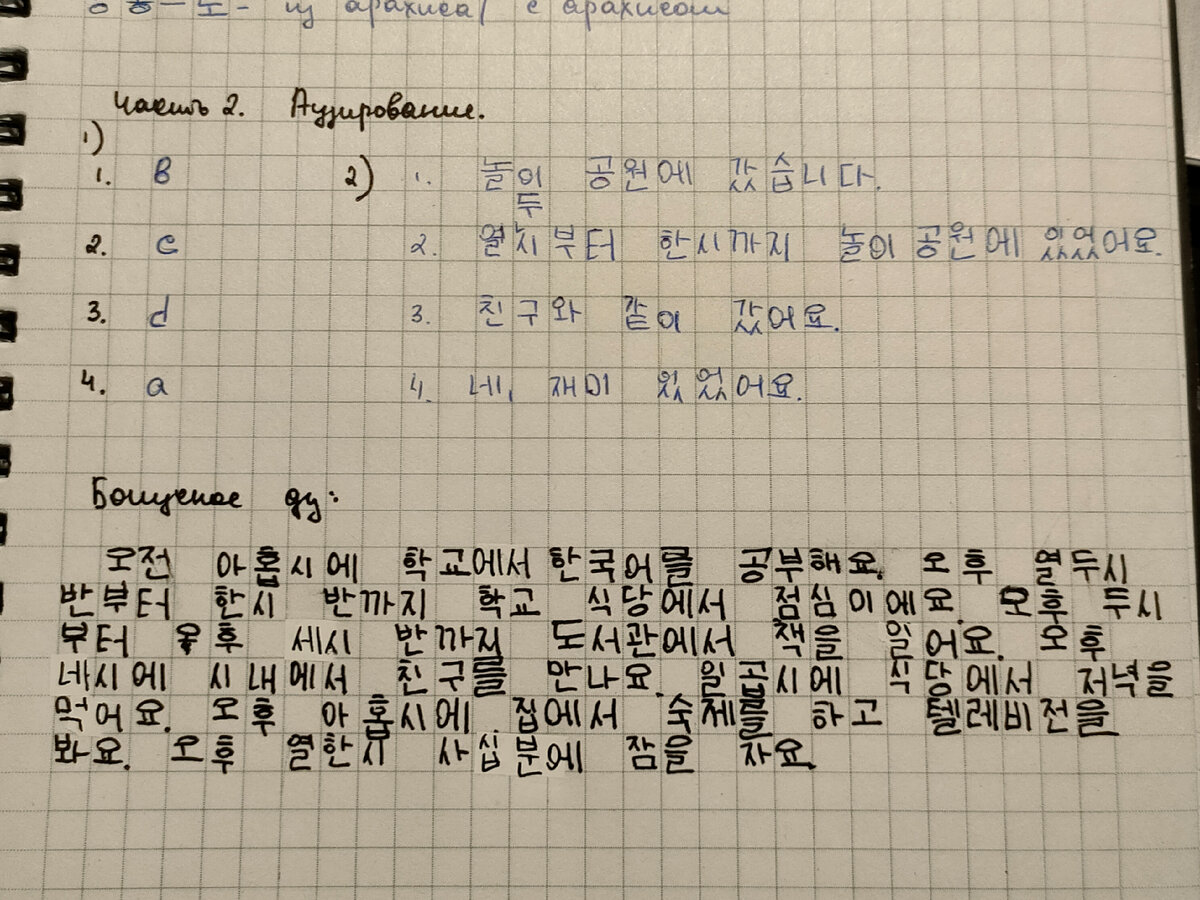 땅콩 – 로 – из арахиса / с арахисом
Часть 2. Аудирование.
1)
1. B 2) 1. 놀이 공원에 갔습니다.
두
2. c 2. 열시부터 한시까지 놀이 공원에 있었어요.
3. d 3. 친구와 같이 갔어요.
4. a 4. 네, 재미 있었어요.
Бощеное ду:
오전 아홉시에 학교에서 한국어를 공부해요. 오후 열두시
반부터 한시 반까지 학교 식당에서 점심이에요. 오후 두시
부터 오후 세시 반까지 도서관에서 책을 일어요. 오후
네시에 시내에서 친구를 만나요. 일곱시에 식당에서 저녁을
먹어요. 오후 아홉시에 집에서 숙제를 하고 텔레비전을
봐요. 오후 열한시 사십분에 잠을 자요.